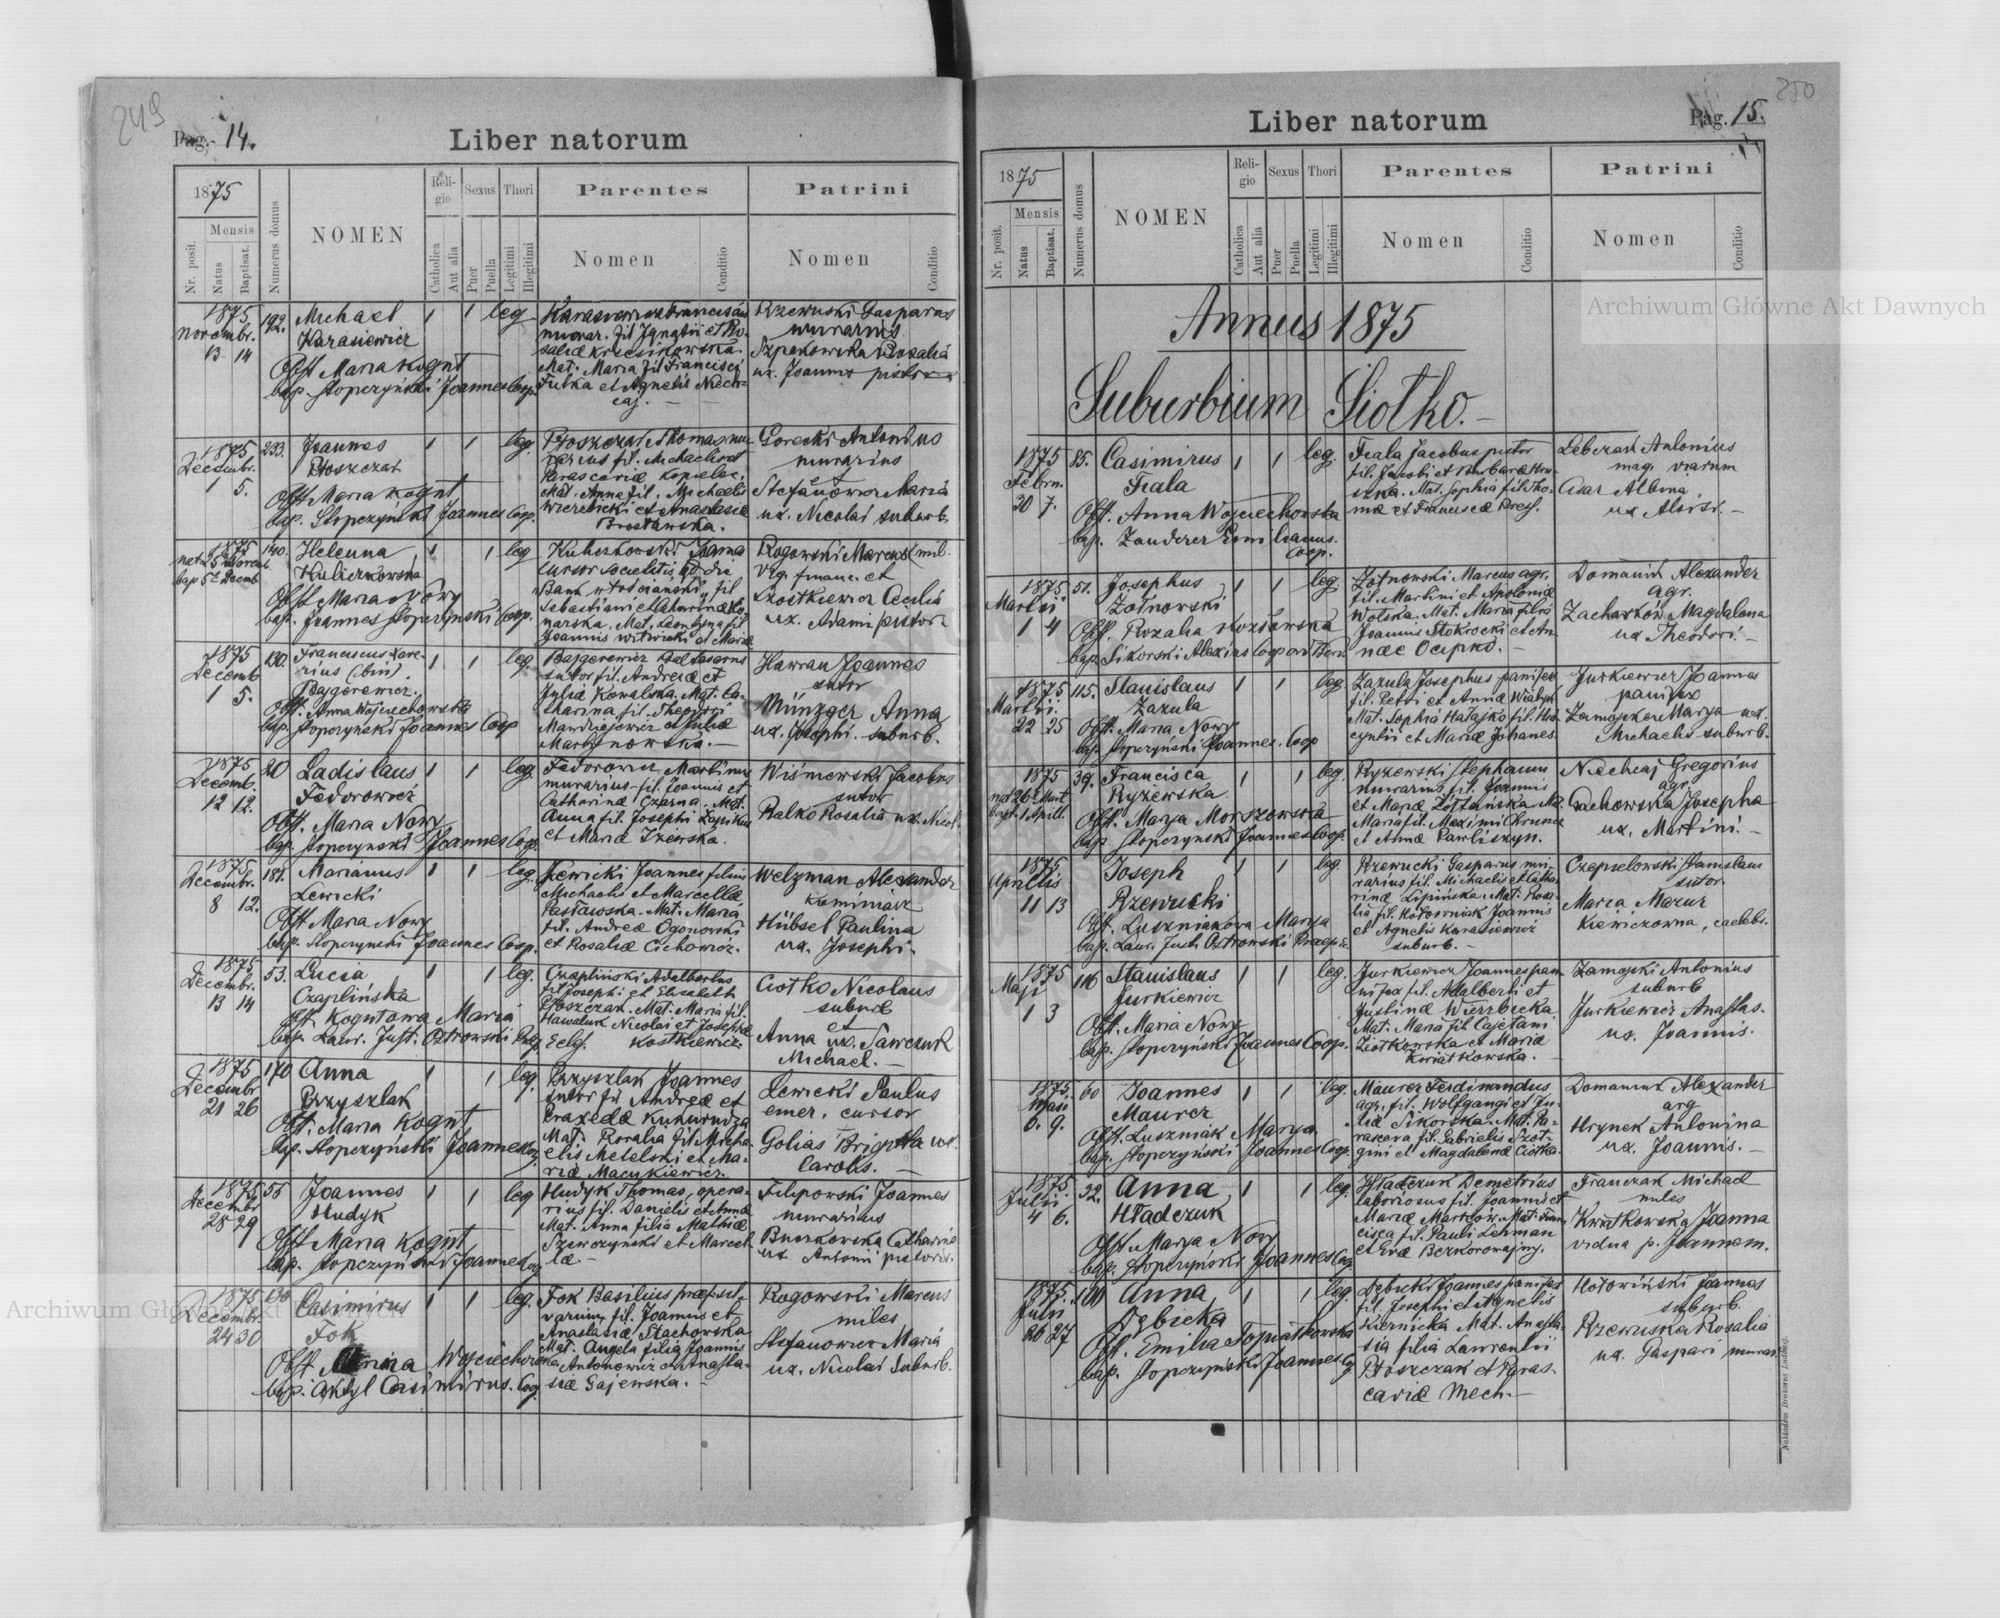 249
Pag. 14.
Liber natorum
1875
Mensis
Nr. posit.
Natus
Baptisat.
Numerus domus
NOMEN
Religio
Catholica
Aut alia
Sexus
Puer
Puella
Thori
Legitimi
Illegitimi
Parentes
Nomen
Conditio
Patrini
Nomen
Conditio
1875
Novembr.
13 14
192.
Michael
Karasiewicz
1 1 leg
Obst Maria Kogut
bap. Stopczyński Joannes Coop.
Karasiewicz Franciscus
murar. fil Ignatii et Ro-
salia Krzesikowska.
Mat. Maria fil Francisci
Futka et Agnetis Niech-
caj. —
Rzewuski Gasparus
murarius
Szpakowska Rosalia
ux. Joannis pistor
1875
Decembr.
1 5.
233.
Joannes
Ptoszczak
1 1 leg.
Obst Maria Kogut
bap. Stopczyński Joannes Coop.
Ptoszczak Thomas mu-
rarius fil. Michaelis et
Parasceviae Kopelec.
Mat. Anna fil. Michaelis
Wierzbicki et Anastasiae
Brosławska.
Gorecki Antonius
murarius
et
Stefanowicz Maria
ux. Nicolai suburb.
1875
nat 25 Novemb
bap 5 Decemb
140.
Helenna
Kuliczkowska
1 1 leg
Obst Maria Nowy
bap. Joannes Stopczyński Coop.
cursor societatis
Bank włościański, fil
Sebastiani et Catharinae
Mat. Leontyna fil
Joannis Witwicki et Maria
Rogowski Marcus mil.
vig. financ. et
Cecilia
ux. Adami pistor
1875
Decemb
1 5.
130.
Franciscus Xave-
rius (bin)
Bajgerewicz.
1 1 leg.
Obst. Anna Wojciechowska
bap. Stopczyński Joannes Coop
Bajgerewicz Baltasarus
sutor fil. Andreae et
Julia Kowalska. Mat. Ca-
tharina fil. Theodori
Mandziejewicz et Julia
Martynowska. —
Hawran Joannes
sutor
Münzger Anna
ux. Josephi. suburb.
1875
Decemb.
12 12.
20
Ladislaus
Fedorowicz
1 1 leg
Obst. Maria Nowy
bap. Stopczyński Joannes Coop.
Fedorowicz Martinus
murarius fil. Joannis et
Catharina Czarna. Mat.
Anna fil. Josephi
et Maria
Wiśniewski Jacobus
sutor
Ralko Rosalia ux. Nicol.
1875
Decembr.
8 12.
181.
Marianus
Lewicki
1 1 leg.
Obst Maria Nowy
bap. Stopczyński Joannes Coop.
Lewicki Joannes filius
Michaelis et Marcella
Pasławska. Mat. Maria
fil. Andreae Ogonowski
et Rosalia Cichowicz.
Welzman Alexander
kaminiarz
Hübsel Paulina
ux. Josephi.
1875
Decembr.
13 14
53.
Lucia
Czaplińska
1 1 leg.
Obst Kogutowa Maria
bap. Laur. Just. Ostrowski
Czapliński Adalbertus
fil Josephi et Elisabeth
Ptoszczak. Mat. Maria fil.
Hawaluk Nicolai et Josephae
Kostkiewicz.
Ciotko Nicolaus
suburb
et
Anna ux. Sawczuk
Michael. —
1875
Decembr
21 26
170
Anna
Przyszlak
1 1 leg.
Obst. Maria Kogut
bap. Stopczyński Joannes Coop.
Przyszlak Joannes
sutor fil Andreae et
Praxedae Kukurudza
Mat. Rosalia fil Micha-
elis Metelski et Ma-
riae Macykiewicz
Lewicki Paulus
emer. cursor
Golias Brigitta ux.
Caroli. —
1875
Decembr
28 29
55
Joannes
Hudyk
1 1 leg
Obst Maria Kogut
bap. Stopczyński Joannes
Hudyk Thomas, opera-
rius fil. Danielis et Annae
Mat. Anna filia Mathiae
Szewczyński et Marcel-
lae —
Filipowski Joannes
murarius
Buczkowska Catharina
ux Antonii pistoris
1875
Decembr.
24 30
Casimirus
Fok
1 1 leg.
Obst Wojciechowska
bap. Casimirus. Coop
Fok Basilius
fil. Joannis et
Anastasiae Stachowska
Mat. Angela filia Joannis
Antonowicz et Anasta-
siae Gajewska. —
Rogowski Marcus
miles
Stefanowicz Maria
ux. Nicolai Suburb.
250
Pag. 15.
Liber natorum
1875
Mensis
Nr. posit.
Natus
Baptisat.
Numerus domus
NOMEN
Religio
Catholica
Aut alia
Sexus
Puer
Puella
Thori
Legitimi
Illegitimi
Parentes
Nomen
Conditio
Patrini
Nomen
Conditio
Annus 1875
Suburbium Siołko. —
1875
Febru.
20 7.
25.
Casimirus
Fiala
1 1 leg.
Obst. Anna Wojciechowska
bap. Zauderer Emilianus.
Coop.
Fiala Jacobus pistor
fil. Jacobi et Barbara
Mat. Sophia fil. Tho-
mae et Franciscae
Leberak Antonius
mag. viarum
Albina
ux Aloisi. —
1875
Martii
1 4
51.
Josephus
Zotnowski
1 1 leg.
Obst. Rozalia Kozłowska
bap. Sikorski Alexius Coop
Zotnowski Marcus agr.
fil. Martini et Apolonia
Wolska. Mat. Maria filia
Joannis Stokrocki et An-
nae Ocipko. —
Domaniuk Alexander
agr.
Zacharków Magdalena
ux Theodori. —
1875
Martii.
22 25
115.
Stanislaus
Zazula
1 1 leg
Obst. Maria Nowy
bap. Stopczyński Joannes. Coop
Zazula Josephus panifex
fil. Petri et Anna
Mat. Sophia Hatajko fil. Hia-
cynthi et Maria Johanes.
Jurkiewicz Joannes
panifex
Marya ux.
Michaelis suburb.
1875
nat 26 Mart
bapt. 1 Aprill.
39.
Francisca
Ryżewska
1 1 leg.
Obst. Marya Morszowska
bap Stopczyński Joannes Coop.
Ryżewski Stephanus
murarius fil. Joannis
et Maria
Maria fil. Maximi
et Anna Pawliszyn.
Niechcaj Gregorius
agr.
Josepha
ux. Martini. —
1875
Aprilis
11 13
Joseph
Rzewucki
1 1 leg.
Obst. Luszniakowa Marya
bap. Laur. Just. Ostrowski
Rzewucki Gasparus mu-
rarius fil. Michaelis et Catha-
rina Lipińska. Mat. Rosa-
lia fil. Joannis
et Agnetis Karasiewicz
suburb. —
Czepielowski Stanislaus
sutor.
Maria Mazur
Kiewiczowna, caelebs.
1875
Maji
1 3
116
Stanislaus
Jurkiewicz
1 1 leg.
Obst. Maria Nowy
bap. Stopczyński Joannes Coop.
Jurkiewicz Joannes pa-
nifex fil. Adalberti et
Justina Wierzbicka
Mat. Maria fil Cajetani
Ziotkowska et Maria
Kwiatkowska. —
Zamojski Antonius
suburb
Jurkiewicz Anastas.
ux. Joannis.
1875.
Maji
6. 9.
60
Joannes
Maurer
1 1 leg.
Obst. Luszniak Marya
bap. Stopczyński Joannes Coop.
Maurer Ferdinandus
agr. fil. Wolfgangi et Ju-
lia Sikorska. Mat. Pa-
rasceva fil. Gabrielis Szot-
gini et Magdalena Ciotka.
Domaniuk Alexander
arg.
Hrynek Antonina
ux. Joannis. —
1875.
Julii
4 6.
32.
Anna
Hładczuk
1 1 leg.
Obst Marya Nowy
bap. Stopczyński Joannes Coop
Hładczuk Demetrius
laboriosus fil. Joannis et
Maria Markow. Mat. Fran-
cisca fil. Pauli Lehman
et Eva Bezkorowajny.
Franczak Michael
miles
Kwiatkowska Joanna
vidua p. Joannem.
1875.
Julii
26 27
101
Anna
Dębicka
1 1 leg.
Obst. Emilia
bap. Stopczyński Joannes
Dębicki Joannes panifex
fil. Josephi et Agnetis
Kiernicka Mat. Anasta-
sia filia Laurentii
Ptoszczak et Paras-
cavia Mech. —
Hołowiński Joannes
suburb.
Rzewuska Rosalia
ux. Gaspari murar.
Nakładem Drukarni Ludowej.
Archiwum Główne Akt Dawnych
Archiwum Główne Akt Dawnych